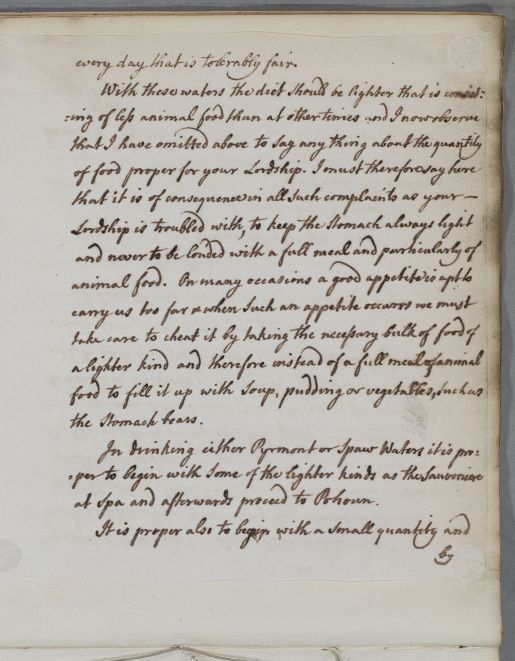 every day that is tolerably fair.
With these waters the diet should be lighter that is consist:
:ing of less animal food than at other times and I now observe
that I have omitted above to say any thing about the quantity
of food proper for your Lordship. I must therefore say here
that it is of consequence in all such complaints as your —
Lordship is troubled with, to keep the Stomach always light
and never to be loaded with a full meal and particularly of
animal food. On many occasions a good appetite is apt to
carry us too far & when such an appetite occurrs we must
take care to cheat it by taking the necessary bulk of food of
a lighter kind and therefore instead of a full meal of animal
food to fill it up with Soup, pudding or vegetables, such as
the Stomach bears.
In drinking either Pyrmont or Spaw Waters it is pro:
:per to begin with some of the lighter kinds as the Sauveniere
at Spa and afterwards proceed to Pohoun.
It is proper also to begin with a small quantity and
by